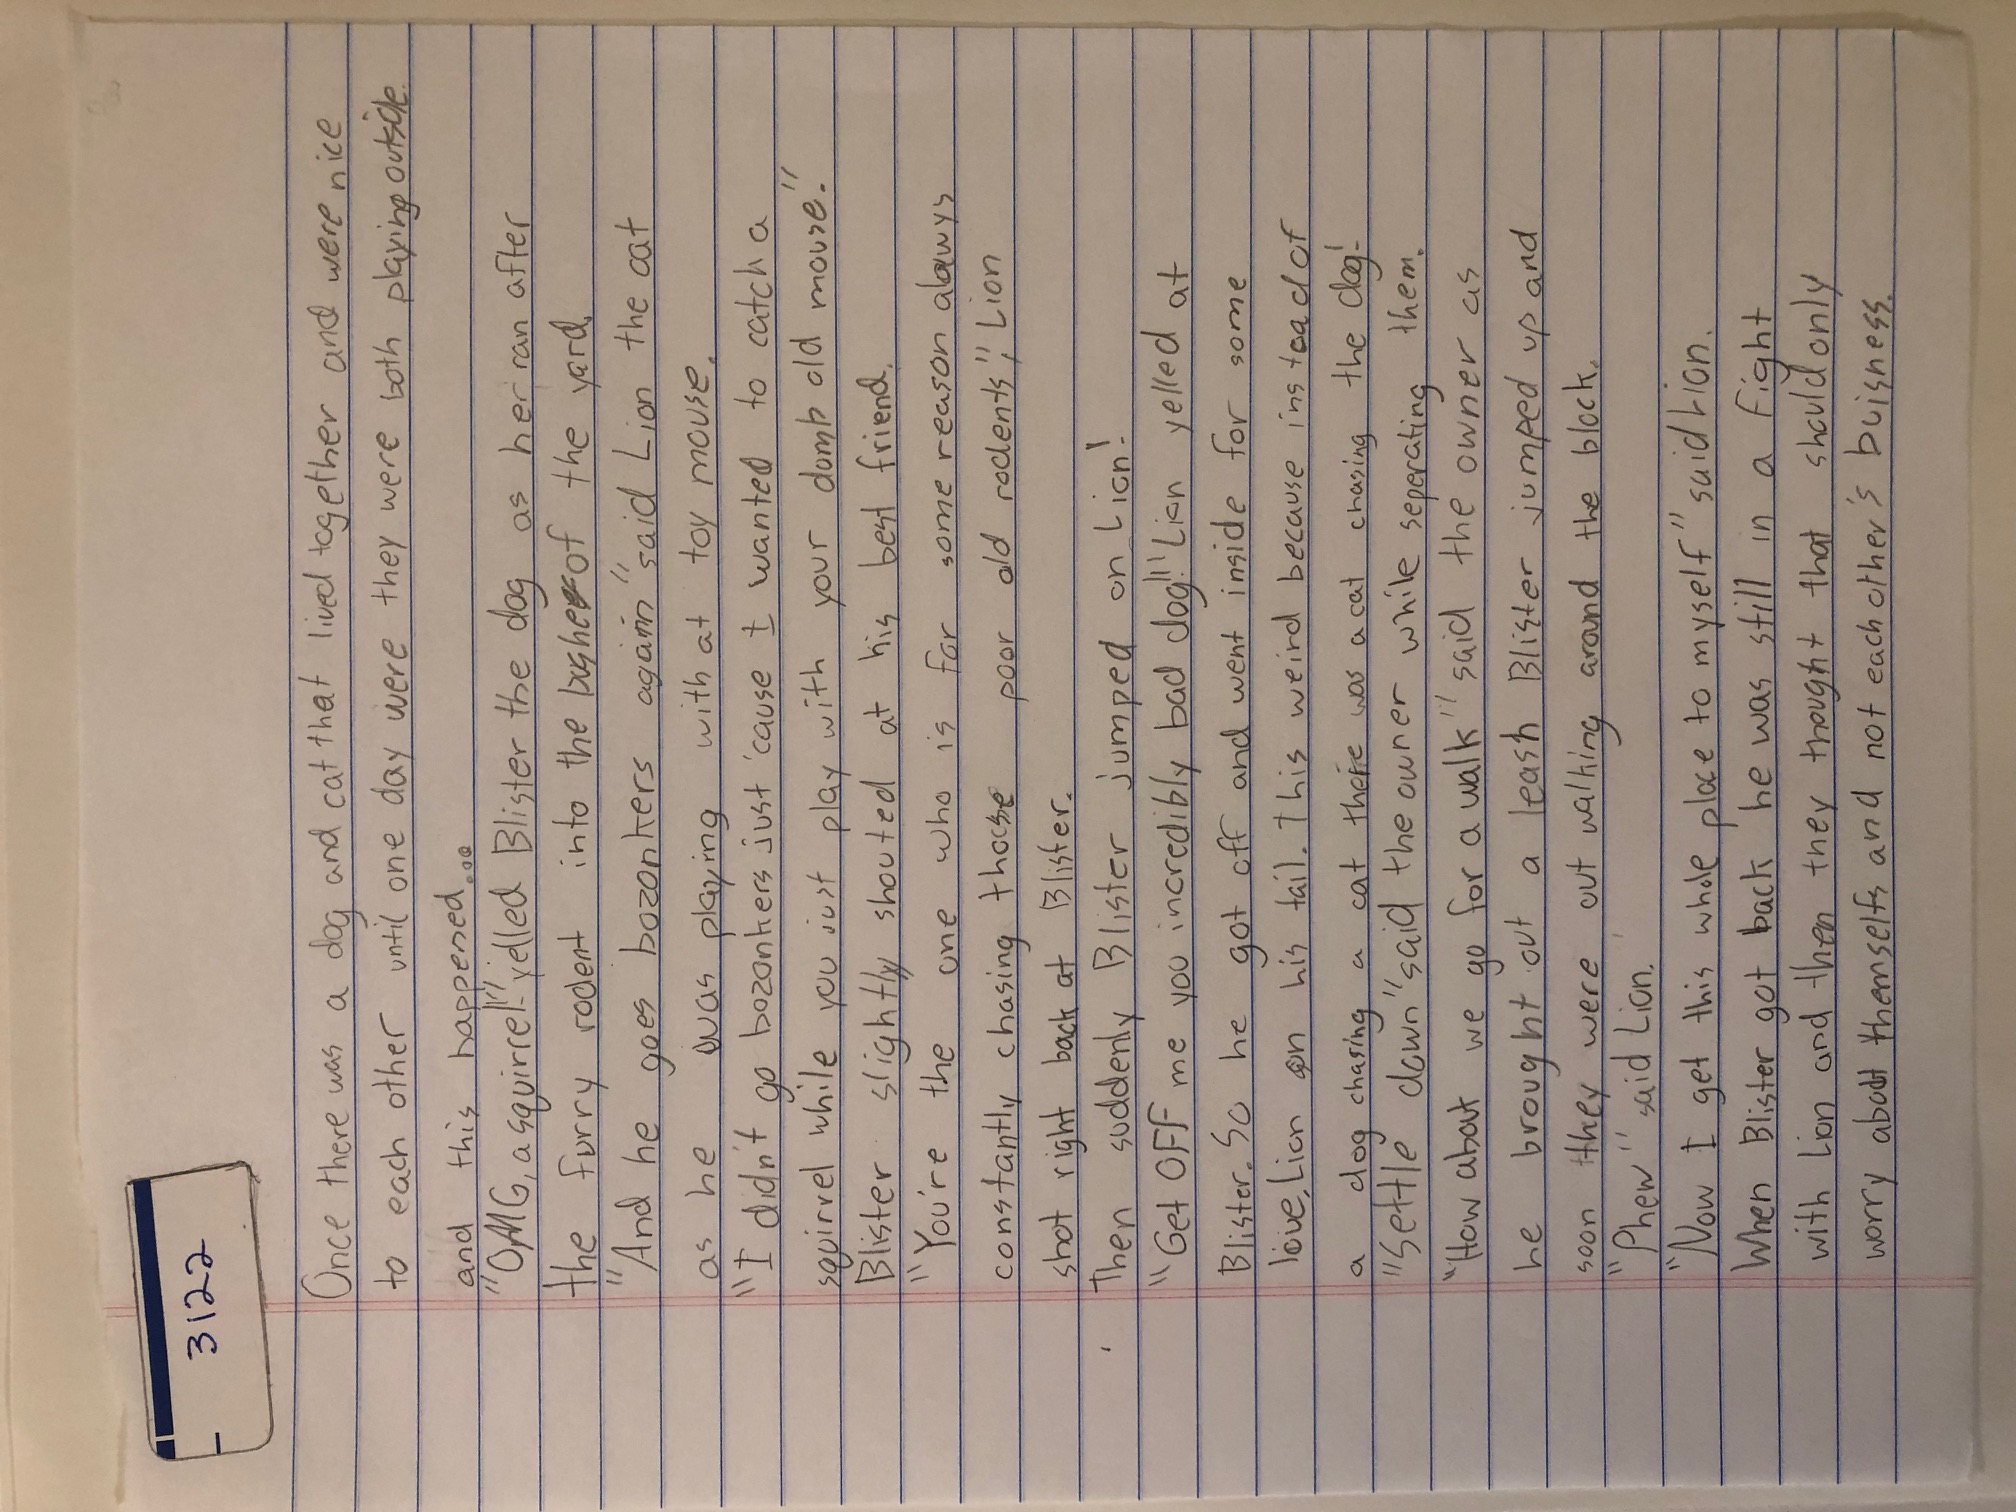 3122
Once there was a dog and cat that lived together and were nice
to each other until one day were they were both playing outside
and this happened...
"OMG, a squirrel!" yelled Blister the dog as her ran after
the furry rodent into the bushes of the yard.
"And he goes bozonkers again" said Lion the cat
as he was playing with at toy mouse.
"I didn't go bozonkers just 'cause I wanted to catch a
squirrel while you just play with your domb old mouse."
Blister slightly shouted at his best friend.
"You're the one who is for some reason alawys
constantly chasing those poor old rodents", Lion
shot right back at Blister.
Then suddenly Blister jumped on Lion!
"Get OFF me you incredibly bad dog!!" Lion yelled at
Blister. So he got off and went inside for some
love, Lion on his tail. This weird because instead of
a dog chasing a cat there was a cat chasing the dog!
"Settle down" said the owner while seperating them.
"How about we go for a walk" said the owner as
he brought out a leash Blister jumped up and
soon they were out walking around the block.
"Phew" said Lion.
"Now I get this whole place to myself" said Lion.
When Blister got back he was still in a fight
with Lion and then they thought that should only
worry about themselfs and not each other's buisness.